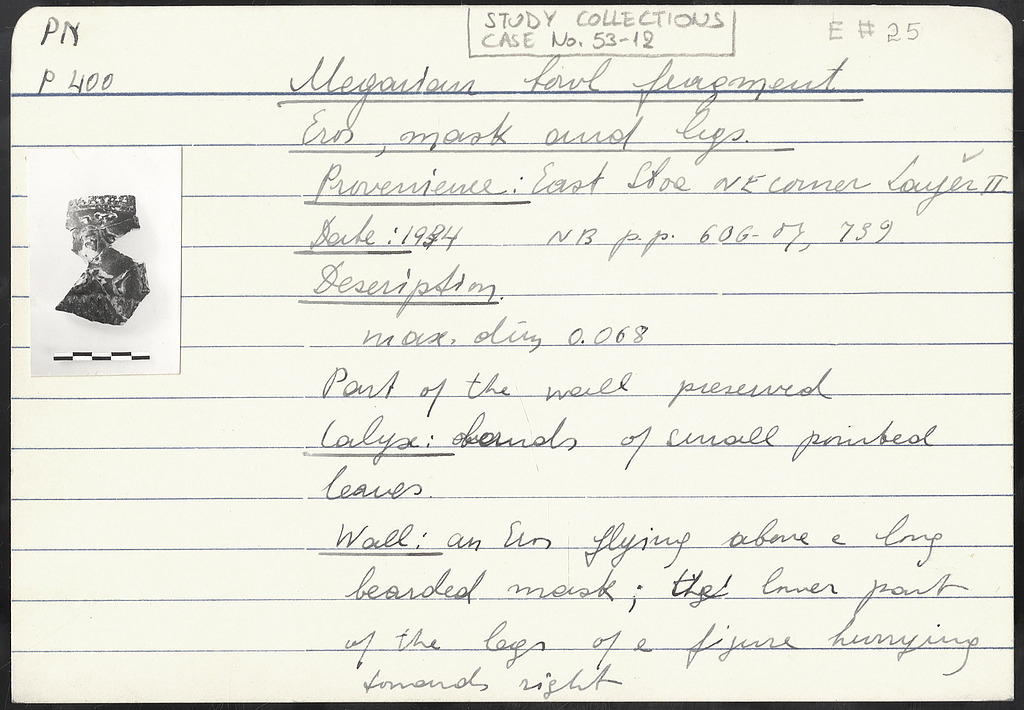 PN
STUDY COLLECTIONS
CASE No. 53-12
E # 25
P 400
Megarian bowl fragment
Eros, mask and legs.
Provenience: East Stoa NE corner Layer II
Date: 1934 NB p.p. 606-07, 739
Description.
max. dim 0.068
Part of the wall preserved
Calyx: bands of small pointed
leaves.
Wall: an Eros flying above a long
bearded mask; the lower part
of the legs of a figure hurrying
towards right